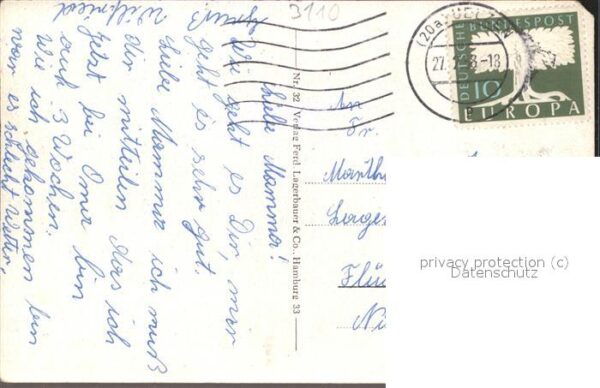 Liebe Mamma!
Wie geht es Dir mir
geht es sehr gut.
Liebe Mamma ich muß
dir mitteilen das ich
jetzt bei Oma bin
auch 3 Wochen.
Wie ich gekommen bin
war es schlecht Wetter.
Gruß
Wilfried
3110
Nr. 32 Verlag Ferd. Lagerbauer & Co., Hamburg 33
An
Fr.
Marth
Lage
Flü
Ni
(20a) UEL
27. 8-18
DEUTSCHE BUNDESPOST
10
EUROPA
privacy protection (c)
Datenschutz